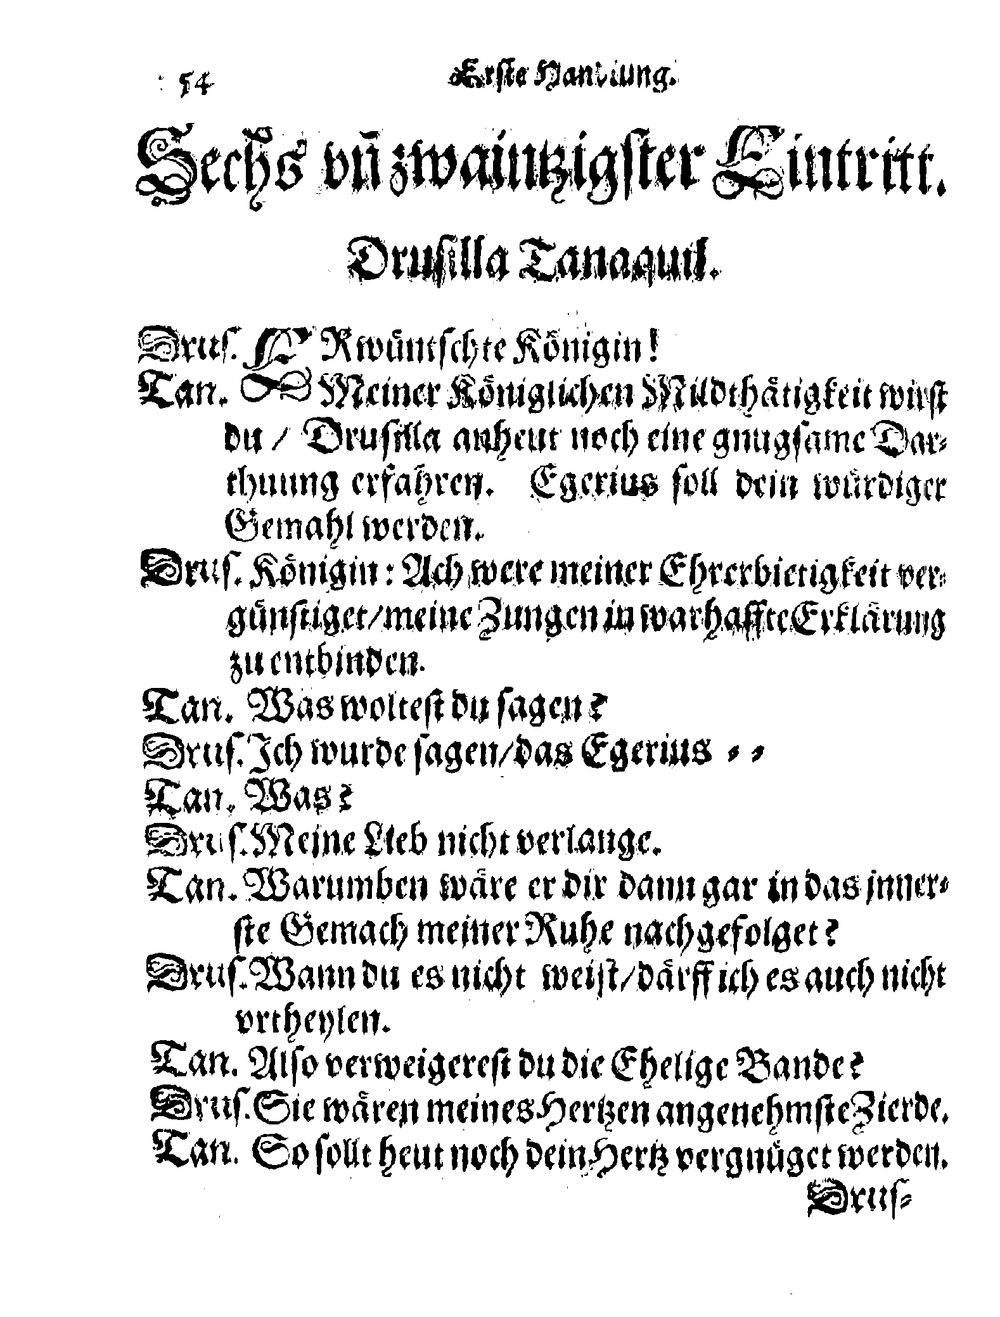 54 Erste Handlung.
Sechs vñ zwaintzigster Eintritt.
Drusilla Tanaquil.
Drus. ERwüntschte Königin!
Tan. Meiner Königlichen Mildthätigkeit wirst
du / Drusilla anheut noch eine gnugsame Dar-
thuung erfahren. Egerius soll dein würdiger
Gemahl werden.
Drus. Königin: Ach were meiner Ehrerbietigkeit ver-
günstiget/meine Zungen in warhaffte Erklärung
zu entbinden.
Tan. Was woltest du sagen?
Drus. Ich wurde sagen/das Egerius - -
Tan. Was?
Drus. Meine Lieb nicht verlange.
Tan. Warumben wäre er dir dann gar in das inner-
ste Gemach meiner Ruhe nachgefolget?
Drus. Wann du es nicht weist/därff ich es auch nicht
vrtheylen.
Tan. Also verweigerest du die Ehelige Bande?
Drus. Sie wären meines Hertzen angenehmste Zierde.
Tan. So sollt heut noch dein Hertz vergnüget werden.
Drus-